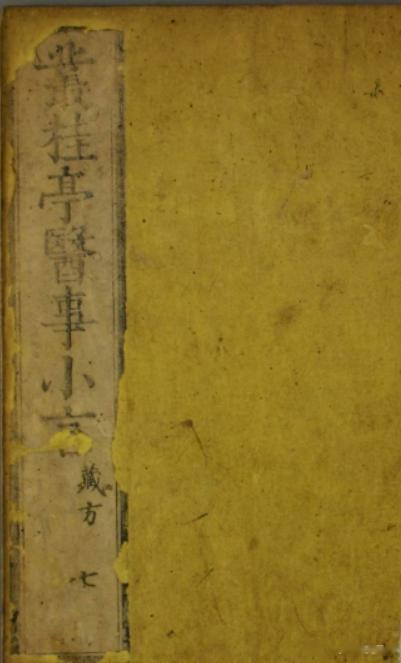 叢桂亭醫事小言
藏方 七